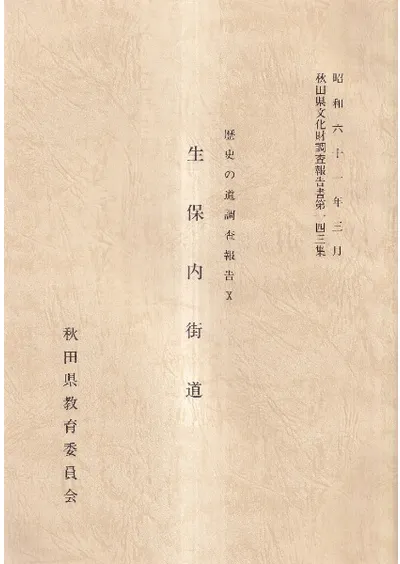 昭和六十一年三月
秋田県文化財調査報告書第一四三集
歴史の道調査報告Ⅹ
生保内街道
秋田県教育委員会